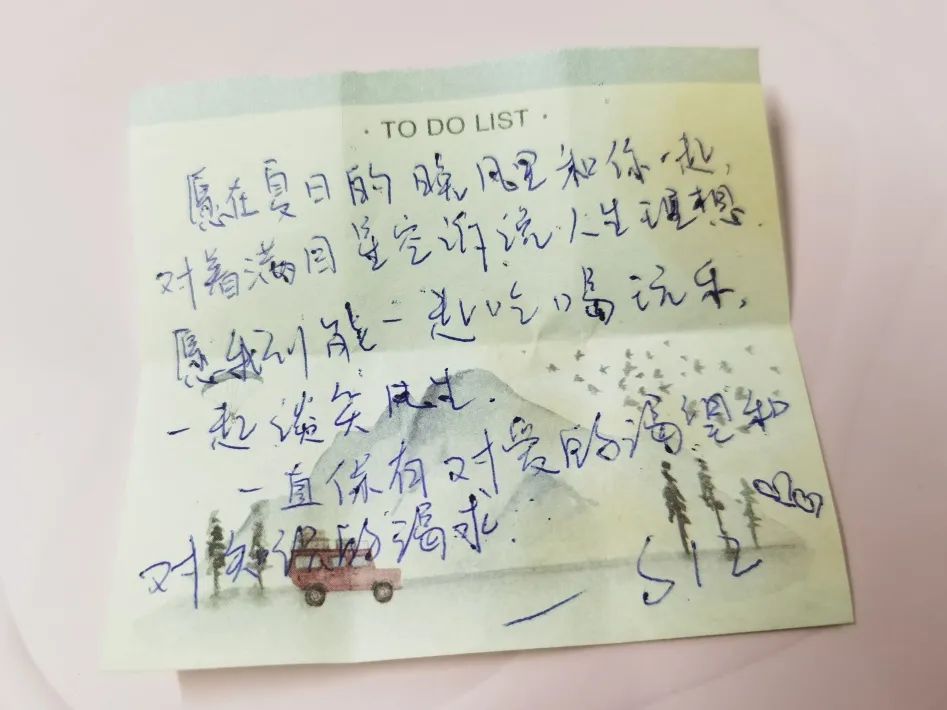 · TO DO LIST ·
愿在夏日的晚风里和你一起,
对着满目星空诉说人生理想.
愿我到能一起吃喝玩乐,
一起谈笑风生.
一直保有对爱的渴望和
对知识的渴求.
— 512